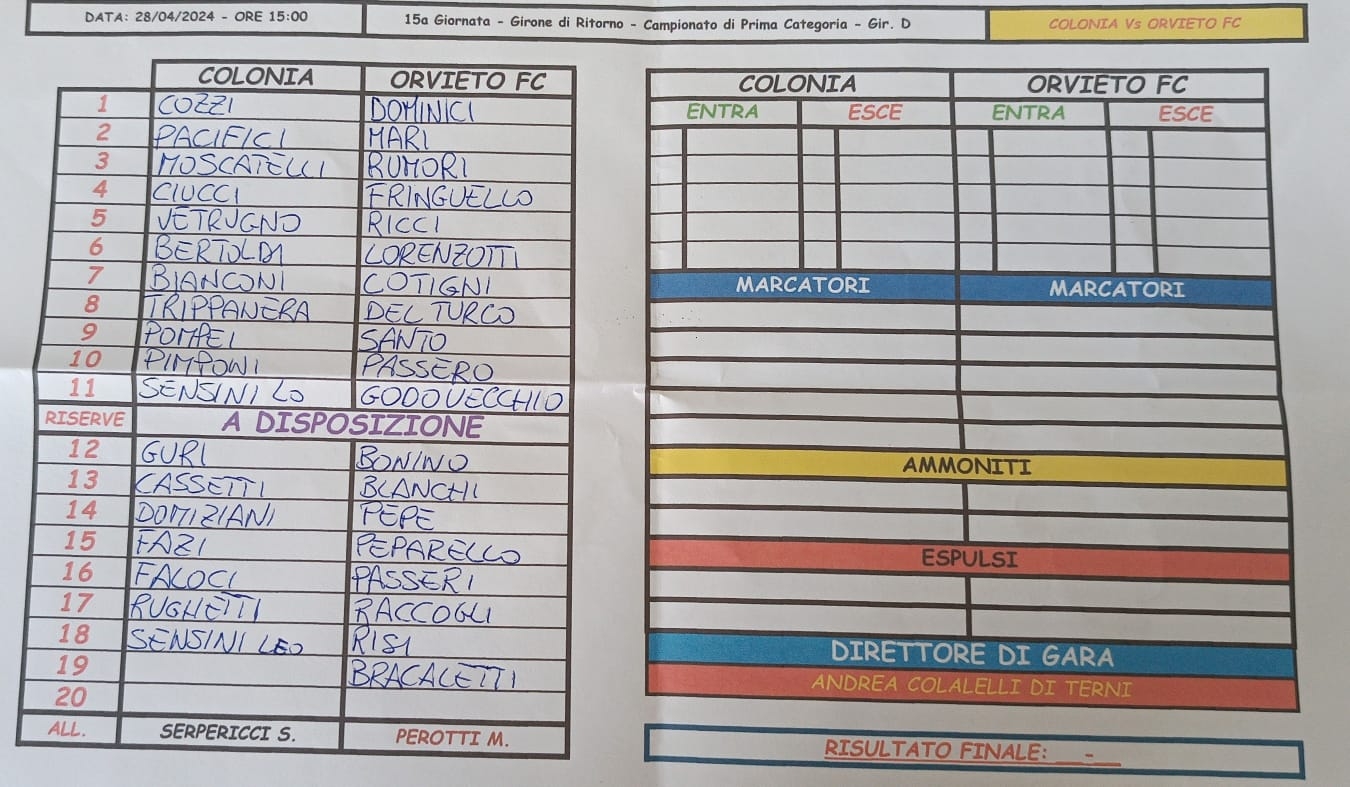 DATA: 28/04/2024 - ORE 15:00 15a Giornata - Girone di Ritorno - Campionato di Prima Categoria - Gir. D COLONIA Vs ORVIETO FC
COLONIA ORVIETO FC
1 COZZI DOMINICI
2 PACIFICI MARI
3 MOSCATELLI RUMORI
4 CIUCCI FRINGUELLO
5 VETRUGNO RICCI
6 BERTOLDI LORENZOTTI
7 BIANCONI COTIGNI
8 TRIPPANERA DEL TURCO
9 POMPEI SANTO
10 PIMPONI PASSERO
11 SENSINI LO GODOVECCHIO
RISERVE A DISPOSIZIONE
12 GURI BONINO
13 CASSETTI BIANCHI
14 DOMIZIANI PEPE
15 FAZI PEPARELLO
16 FALOCI PASSERI
17 RUGHETTI RACCOGLI
18 SENSINI LEO RISI
19 BRACALETTI
20
ALL. SERPERICCI S. PEROTTI M.
COLONIA ORVIETO FC
ENTRA ESCE ENTRA ESCE
MARCATORI MARCATORI
AMMONITI
ESPULSI
DIRETTORE DI GARA
ANDREA COLALELLI DI TERNI
RISULTATO FINALE: __-__